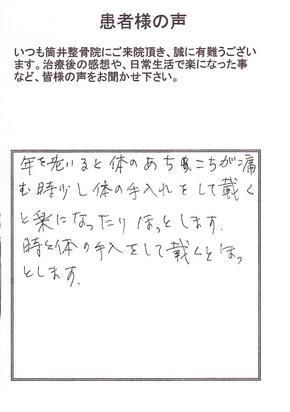 患者様の声
いつも筒井整骨院にご来院頂き、誠に有難うござい
ます。治療後の感想や、日常生活で楽になった事
など、皆様の声をお聞かせ下さい。
年を老いると体のあちこちが痛
む時少し体の手入れをして戴く
と楽になったりほっとします。
時々体の手入をして戴くとほっ
とします。